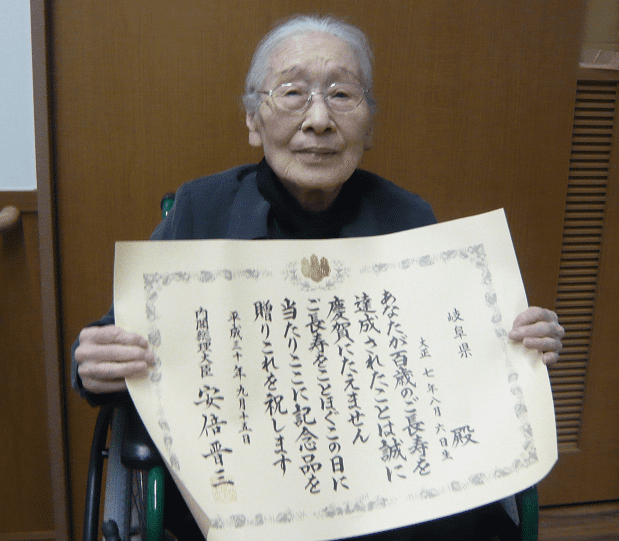 岐阜県
殿
大正 七年八月六日生
あなたが百歳のご長寿を
達成されたことは誠に
慶賀にたえません
ご長寿をことほぐこの日に
当たりここに記念品を
贈りこれを祝します
平成三十年九月十五日
内閣総理大臣 安倍晋三